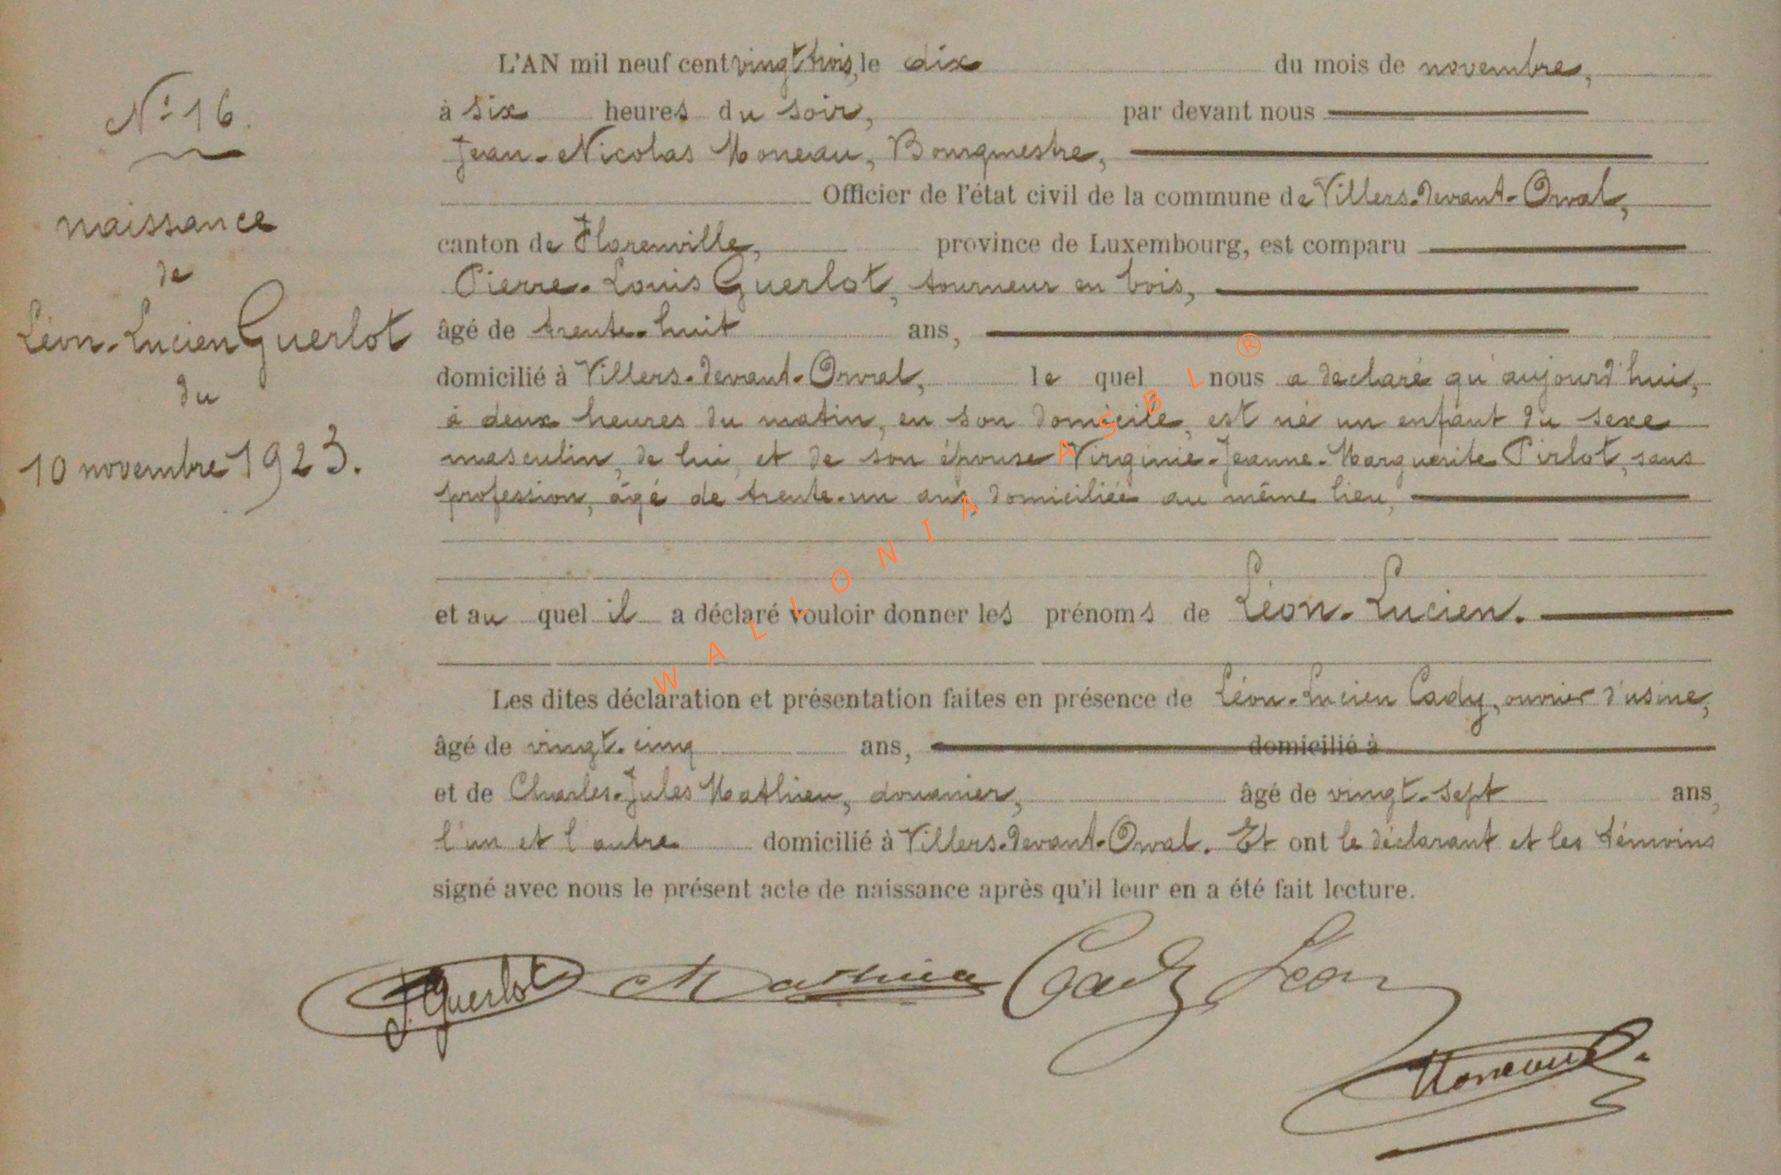 N° 16.
naissance
de
Léon-Lucien Guerlot
du
10 novembre 1923.
L'AN mil neuf cent vingt trois, le dix du mois de novembre,
à six heures du soir, par devant nous
Jean-Nicolas Moneau, Bourgmestre,
Officier de l'état civil de la commune de Villers-devant-Orval,
canton de Florenville, province de Luxembourg, est comparu
Pierre-Louis Guerlot, tourneur en bois,
âgé de trente-huit ans,
domicilié à Villers-devant-Orval, le quel nous a déclaré qu'aujourd'hui,
à deux heures du matin, en son domicile, est né un enfant du sexe
masculin, de lui et de son épouse Virginie-Jeanne-Marguerite Pirlot, sans
profession, âgé de trente-un ans domiciliée au même lieu,
et au quel il a déclaré vouloir donner les prénoms de Léon-Lucien.
Les dites déclaration et présentation faites en présence de Léon-Lucien Cady, ouvrier d'usine,
âgé de vingt-cinq ans, domicilié à
et de Charles-Jules Mathieu, douanier, âgé de vingt-sept ans,
l'un et l'autre domicilié à Villers-devant-Orval. Et ont le déclarant et les témoins
signé avec nous le présent acte de naissance après qu'il leur en a été fait lecture.
Guerlot Mathieu Cady Léon
Moneau
WALLONIA ASBL ®